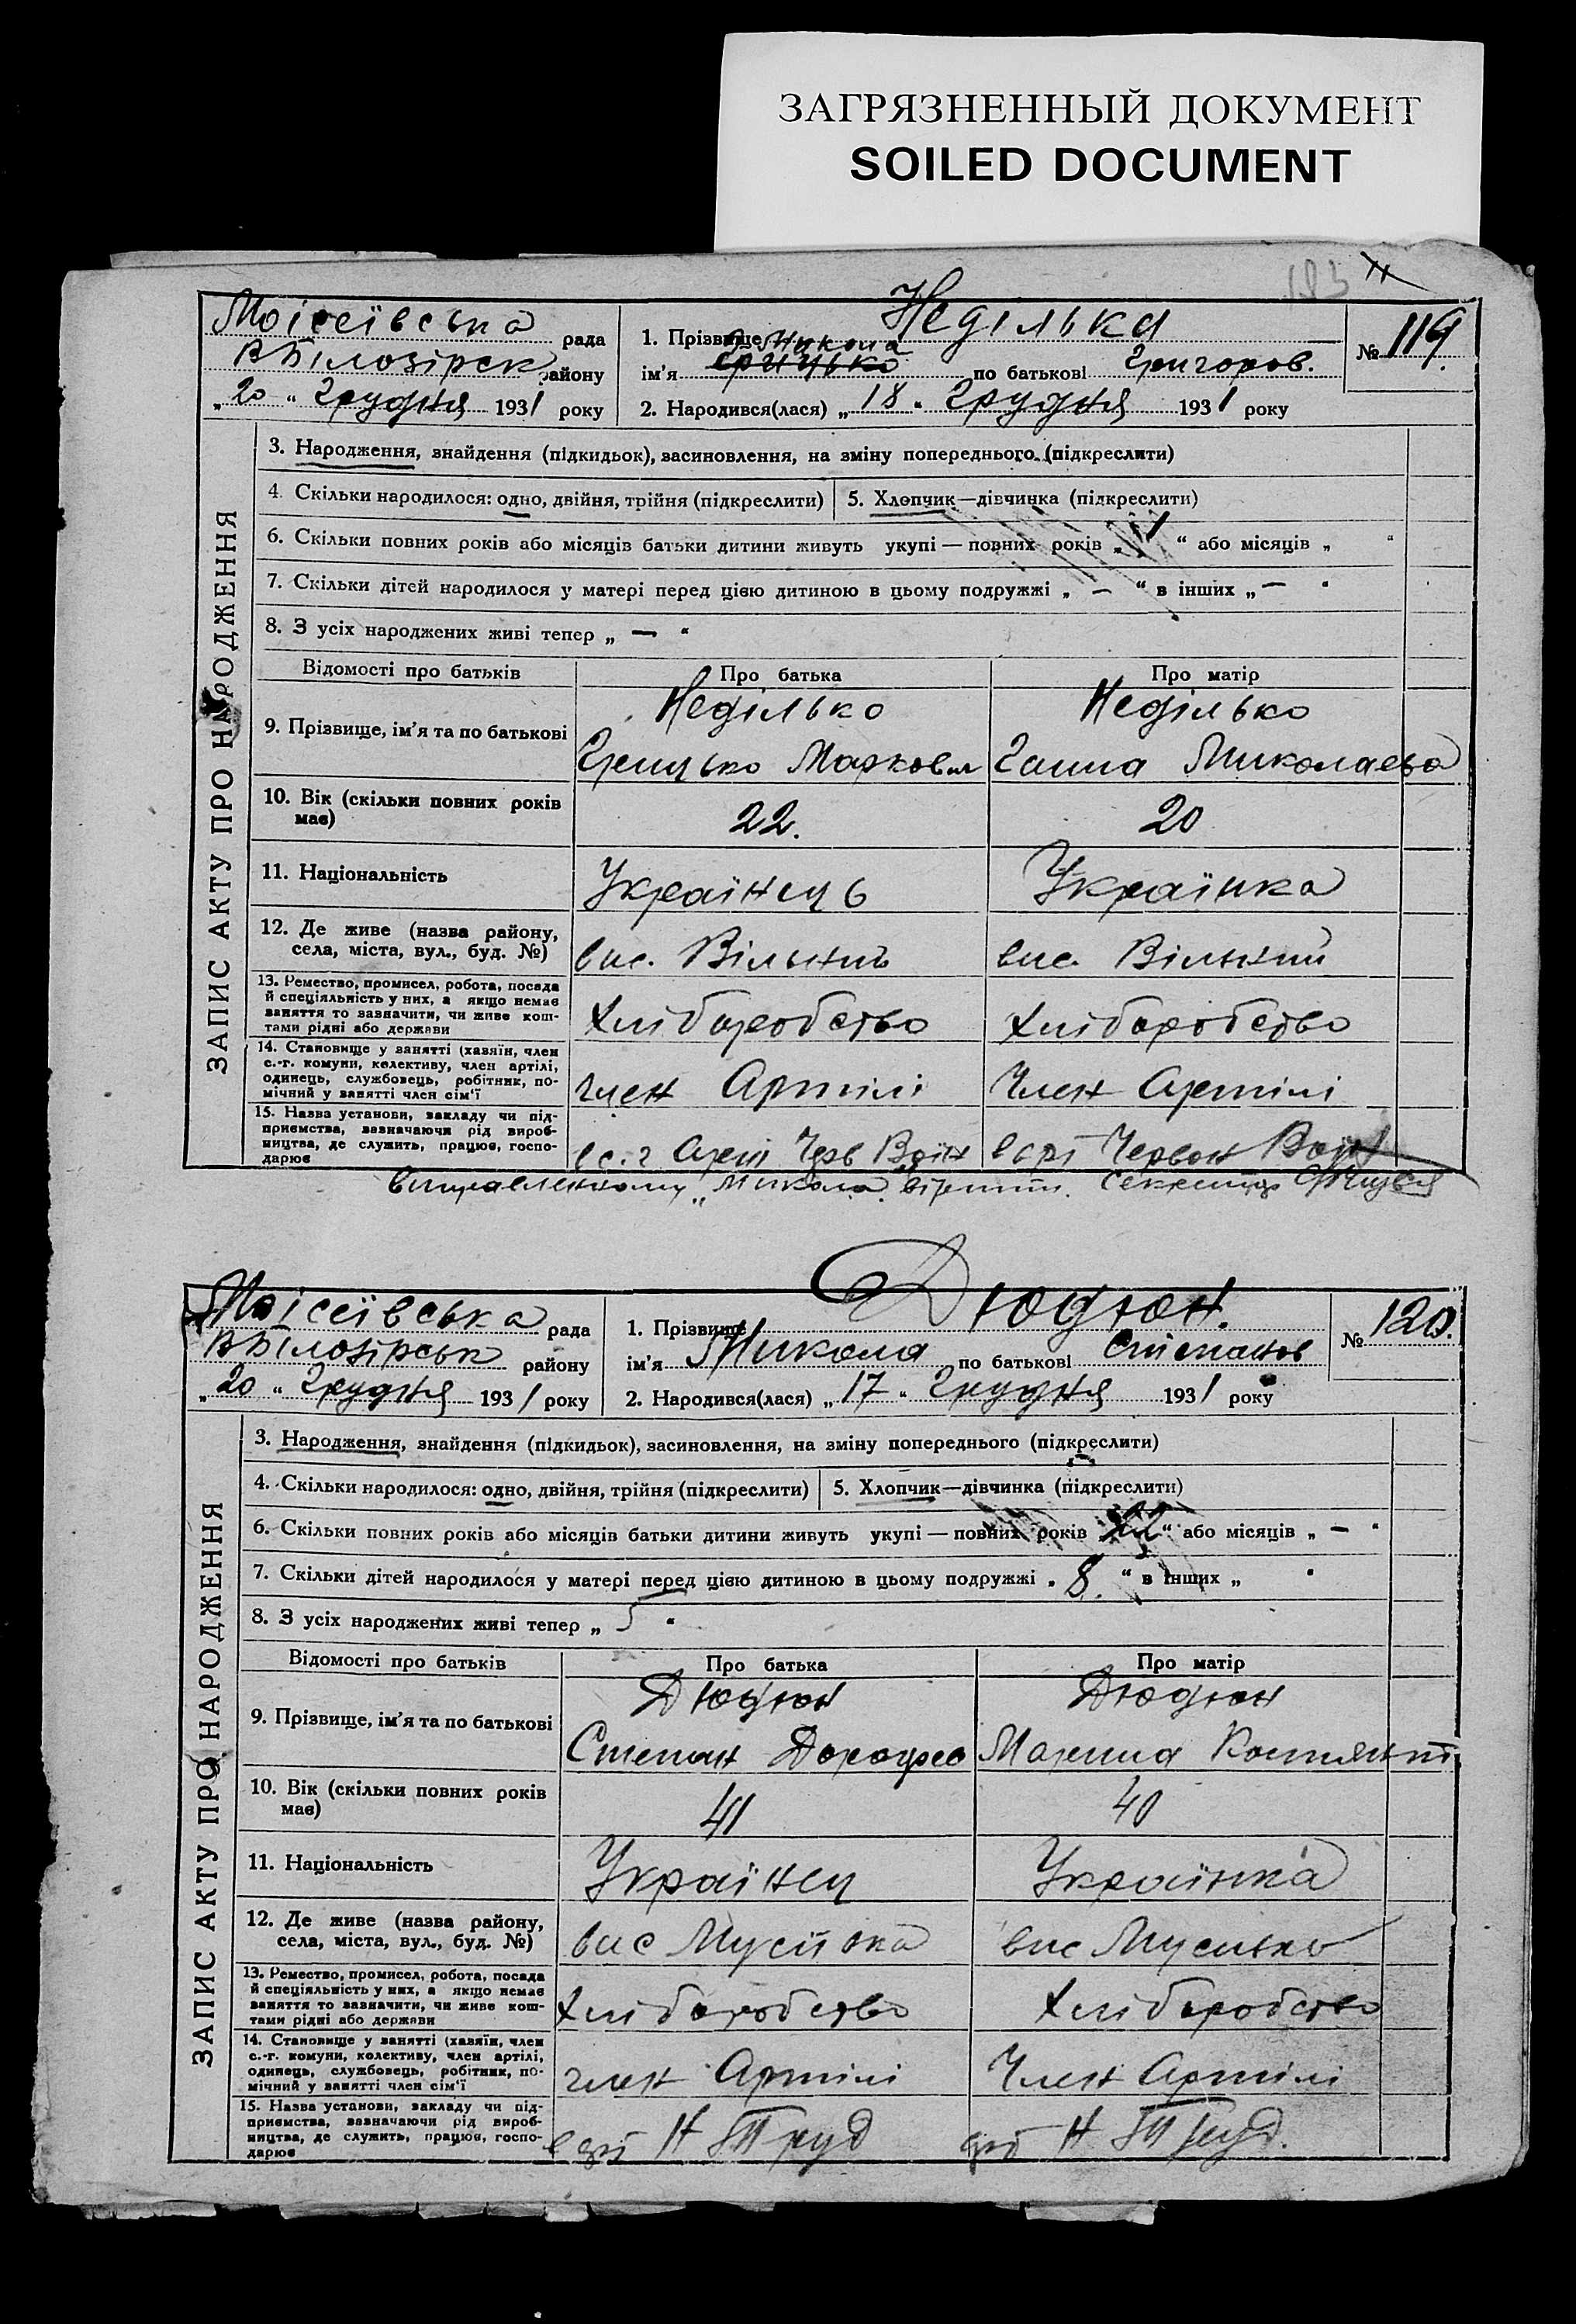 ЗАГРЯЗНЕННЫЙ ДОКУМЕНТ
SOILED DOCUMENT
Моісеївська рада
ВБілозірськ району
„ 20 “ Грудня 1931 року
1. Прізвище Неділька
Микола
ім’я Грицько по батькові Григоров.
2. Народився(лася) „ 18 “ Грудня 1931 року
№ 119.
ЗАПИС АКТУ ПРО НАРОДЖЕННЯ
3. Народження, знайдення (підкидьок), засиновлення, на зміну попереднього (підкреслити)
4. Скільки народилося: одно, двійня, трійня (підкреслити) 5. Хлопчик—дівчинка (підкреслити)
6. Скільки повних років або місяців батьки дитини живуть укупі — повних років „ 1 “ або місяців „ “
7. Скільки дітей народилося у матері перед цією дитиною в цьому подружжі „ — “ в інших „ — “
8. З усіх народжених живі тепер „ — “
Відомості про батьків Про батька Про матір
9. Прізвище, ім’я та по батькові Неділько Неділько
Грицько Маркович Ганна Миколаєва
10. Вік (скільки повних років має) 22. 20
11. Національність Українець Українка
12. Де живе (назва району, села, міста, вул., буд. №) вис. Вільний вис. Вільний
13. Ремество, промисел, робота, посада й спеціяльність у них, а якщо немає заняття то зазначити, чи живе коштами рідні або держави Хліборобство Хліборобство
14. Становище у занятті (хазяїн, член с.-г. комуни, колективу, член артілі, одинець, службовець, робітник, помічний у занятті член сім’ї член Артілі Член Артілі
15. Назва установи, закладу чи підприємства, зазначаючи рід виробництва, де служить, працює, господарює в с.г Арті Черв Воїн в арт Червон Воїн
виправленному „Микола“ вірити. Секретар
Дюдюн.
Моісеївська рада
ВБілозірськ району
„ 20 “ Грудня 1931 року
1. Прізвище
ім’я Микола по батькові Степанов
2. Народився(лася) „ 17 “ Грудня 1931 року
№ 120.
ЗАПИС АКТУ ПРО НАРОДЖЕННЯ
3. Народження, знайдення (підкидьок), засиновлення, на зміну попереднього (підкреслити)
4. Скільки народилося: одно, двійня, трійня (підкреслити) 5. Хлопчик—дівчинка (підкреслити)
6. Скільки повних років або місяців батьки дитини живуть укупі — повних років „ 22 “ або місяців „ — “
7. Скільки дітей народилося у матері перед цією дитиною в цьому подружжі „ 8. “ в інших „ “
8. З усіх народжених живі тепер „ 5 “
Відомості про батьків Про батька Про матір
9. Прізвище, ім’я та по батькові Дюдюн Дюдюн
Степан Дорофео Марина Костянті
10. Вік (скільки повних років має) 41 40
11. Національність Українец Українка
12. Де живе (назва району, села, міста, вул., буд. №) вис Мусіівка вис
13. Ремество, промисел, робота, посада й спеціяльність у них, а якщо немає заняття то зазначити, чи живе коштами рідні або держави Хліборобство Хліборобство
14. Становище у занятті (хазяїн, член с.-г. комуни, колективу, член артілі, одинець, службовець, робітник, помічний у занятті член сім’ї член Артілі Член Артілі
15. Назва установи, закладу чи підприємства, зазначаючи рід виробництва, де служить, працює, господарює в арт Н Труд арт Н Труд.